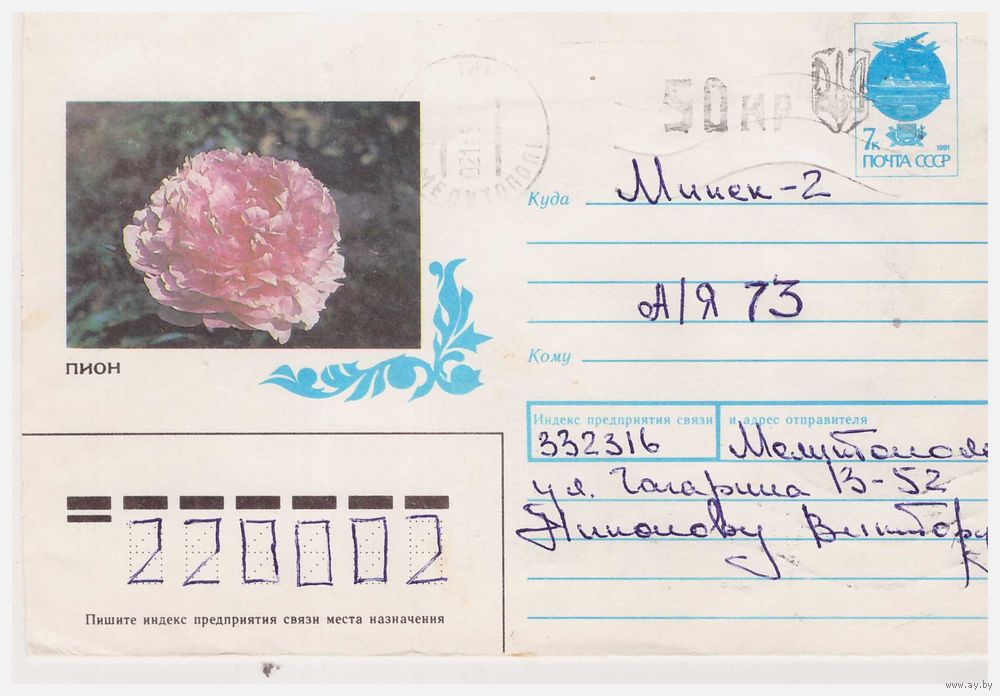 50 КР
7к
1991
ПОЧТА СССР
МЕЛИТОПОЛЬ
Куда Минск-2
А/Я 73
Кому
ПИОН
Индекс предприятия связи и адрес отправителя
332316 Мелитополь
ул. Гагарина 13-52
Виктору
220002
Пишите индекс предприятия связи места назначения
www.ay.by